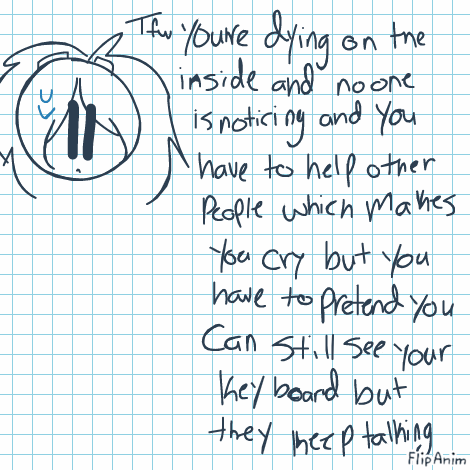 Tfw You're dying on the
inside and no one
is noticing and you
have to help other
People which Makes
You cry but you
have to Pretend you
Can Still see your
keyboard but
they keep talking
FlipAnim